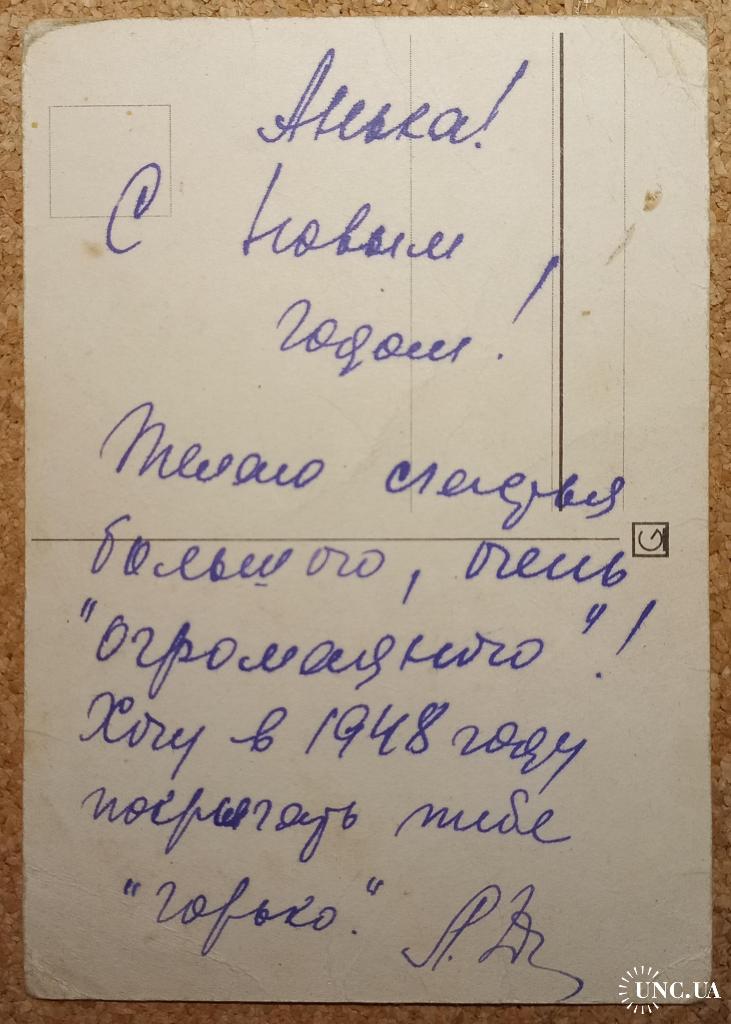 Анька!
С Новым
годом!
Желаю счастья
большого, очень
"огромадного"!
Хочу в 1948 году
покричать тебе
"горько."
UNC.UA